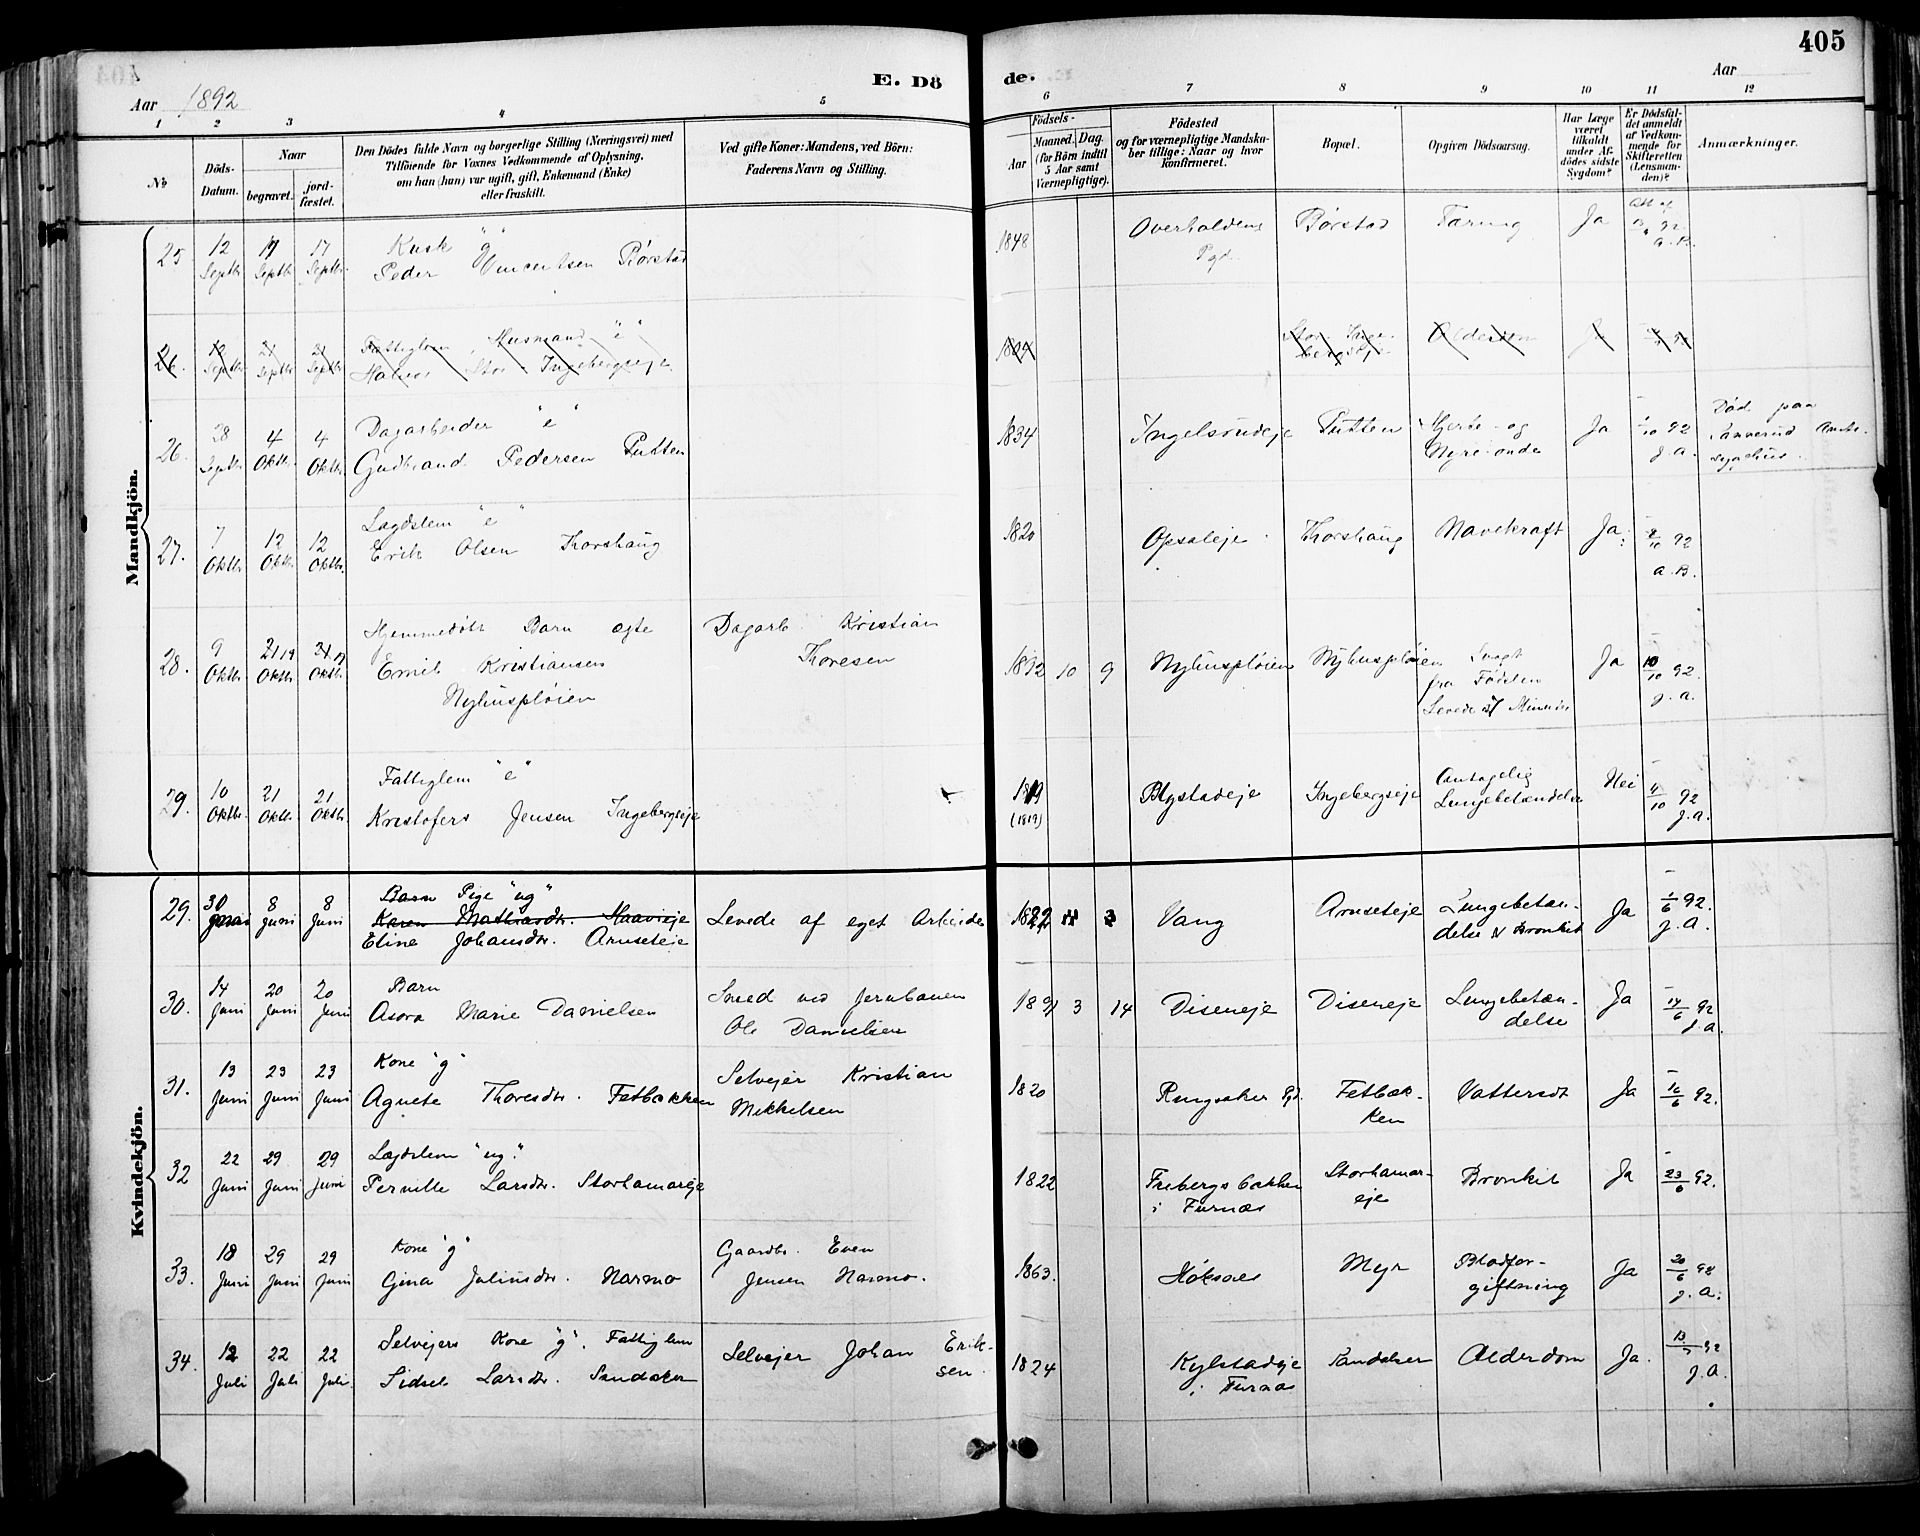 405
E. Dö
de.
Aar 1892
Aar
1 2 3 4 5 6 7 8 9 10 11 12
No
Döds-
Datum.
Naar
begravet.
jord-
fæstet.
Den Dödes fulde Navn og borgerlige Stilling (Næringsvei) med
Tilföiende for Voxnes Vedkommende af Oplysning,
om han (hun) var ugift, gift, Enkemand (Enke)
eller fraskilt.
Ved gifte Koner: Mandens, ved Börn:
Faderens Navn og Stilling.
Födsels-
Aar
Maaned. Dag.
(for Börn indtil
5 Aar samt
Værnepligtige).
Födested
og for værnepligtige Mandska-
ber tillige: Naar og hvor
konfirmeret.
Bopæl.
Opgiven Dödsaarsag.
Har Læge
været
tilkaldt
under Af-
dödes sidste
Sygdom?
Er Dödsfal-
det anmeldt
af Vedkom-
mende for
Skifteretten
(Lensman-
den)?
Anmærkninger.
Mandkjön.
25 12 Septbr. 17 Septbr. 17 Septbr.
Kusk "g"
Peder Vincentsen Börstad
1848 Overhaldens Pgd. Börstad Tæring Ja
92
a. B.
26. 12 Septbr 21 Septbr 21 Septbr
Fattiglem, Husmand "e"
Halvor Stor-Ingebergseje
1804 Stor-Inge-
bergseje Alderdom Ja
26. 28 Septbr 4 Oktbr. 4 Oktbr.
Dagarbeider "e"
Gudbrand Pedersen Putten
1834 Ingelsrudeje Putten Hjerte- og
Nyre-onde Ja 1/10 92
J. A.
Död paa
Sanderud Amts-
sygehus.
27. 7 Oktbr. 12 Oktbr. 12 Oktbr.
Lægdslem "e"
Erik Olsen Thorshaug
1820 Opsaleje Thorshaug Mavekræft Ja. 8/10 92
a. B.
28. 9 Oktbr. 21 19 Oktbr. 21 19 Oktbr.
Hjemmedöbt Barn ægte
Emil Kristiansen
Nyhusplöien
Dagarb. Kristian
Thoresen
1892 10 9 Nyhusplöien Nyhusplöien Svagt
fra Födslen
Levede 27 Minuter Ja 10/10 92.
J. A.
29. 10 Oktbr. 21 Oktbr. 21 Oktbr.
Fattiglem "e"
Kristofers Jensen Ingebergseje
1819
(1819) Blystadeje Ingebergseje Antagelig
Lungebetændelse Nei 11/10 92
J. A.
Kvindekjön.
29. 30 Juni 8 Juni 8 Juni
Barn Pige "ug"
Karen Mathiasdtr. Haavieje
Eline Johansdtr. Arneseteje
Levede af eget Arbeide
1822 11 3 Vang Arneseteje Lungebetæn-
delse & Bronkit Ja 1/6 92.
J. A.
30. 14 Juni 20 Juni 20 Juni
Barn
Asora Marie Danielsen
Smed ved Jernbanen
Ole Danielsen
1891 3 14 Diseneje Diseneje Lungebetæn-
delse Ja 14/6 92
J. A.
31. 13 Juni 23 Juni 23 Juni
Kone "g"
Agnete Thoresdtr. Fætbakken
Selvejer Kristian
Mikkelsen
1820 Ringsaker Pgd. Fetbæk-
ken Vattersot Ja 16/6 92.
32 22 Juni 29 Juni 29 Juni
Lægdslem "ug."
Pernille Larsdtr. Storhamareje
1822 Fribergsbakken
i Furnæs Storhamar-
eje Bronkit Ja 23/6 92.
33. 18 Juni 29 Juni 29 Juni
Kone "g"
Gina Juliusdtr. Narmo
Gaardbr. Even
Jensen Narmo.
1863. Höksnes Myr Blodfor-
giftning Ja 20/6 92
J. A.
34. 12 Juli 22 Juli 22 Juli.
Selvejers Kone "g". Fattiglem
Sidsel Larsdtr. Sandaker
Selvejer Johan Erik-
sen.
1824 Kylstadeje
i Furnæs Sandaker Alderdom Ja. 13/7 92
J. A.